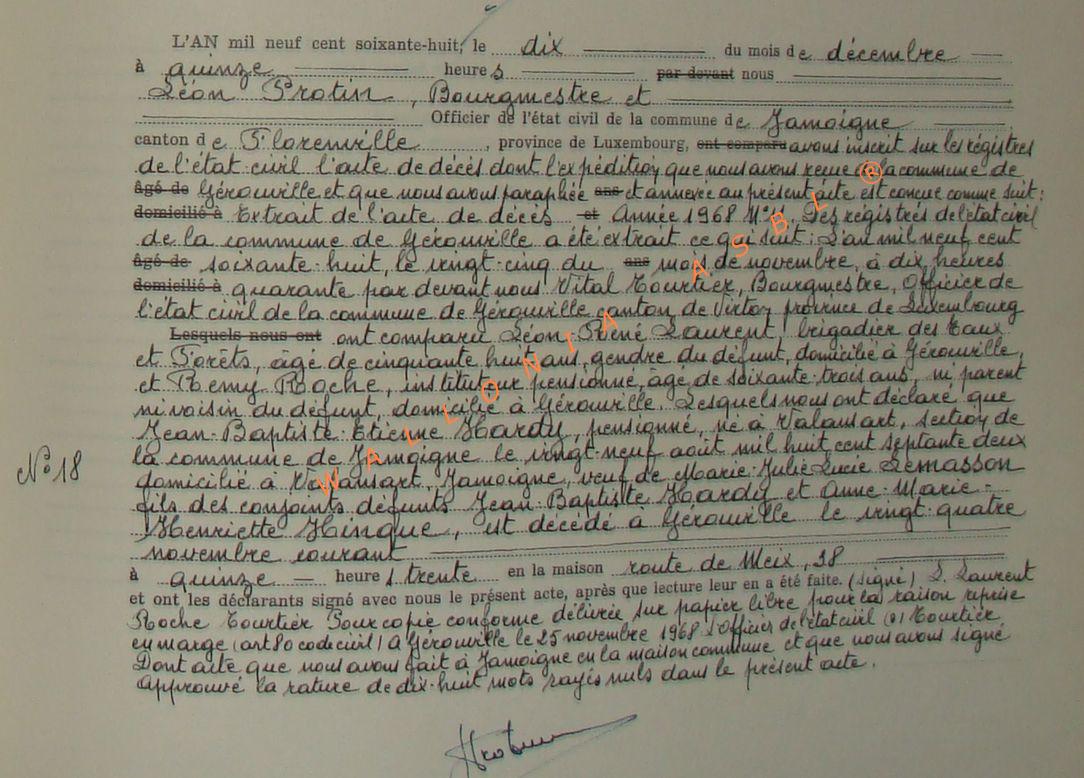 L'AN mil neuf cent soixante-huit, le dix du mois de décembre
à quinze heures par devant nous
Léon Protin, Bourgmestre et
Officier de l'état civil de la commune de Jamoigne
canton de Florenville, province de Luxembourg, ont comparu avons inscrit sur les régistres
de l'état-civil l'acte de décès dont l'expédition que nous avons reçue de la commune de
âgé de Gérouville et que nous avons paraphée ans et annexée au présent acte est conçue comme suit:
domicilié à Extrait de l'acte de décès et Année 1968 N° Des régistres de l'état civil
de la commune de Gérouville a été extrait ce qui suit: L'an mil neuf cent
âgé de soixante-huit, le vingt-cinq du ans mois de novembre, à dix heures
domicilié à quarante par devant nous Vital Tourtier, Bourgmestre, Officier de
l'état civil de la commune de Gérouville canton de Virton province de Luxembourg
Lesquels nous ont ont comparu Léon René Laurent, brigadier des Eaux
et Forêts, âgé de cinquante huit ans, gendre du défunt, domicilié à Gérouville,
et Remy Roche, instituteur pensionné, âgé de soixante-trois ans, ni parent
ni voisin du défunt, domicilié à Gérouville. Lesquels nous ont déclaré que
Jean-Baptiste-Etienne Hardy, pensionné, né à Valansart, section de
N° 18
la commune de Jamoigne le vingt-neuf août mil huit cent septante deux
domicilié à Valansart, Jamoigne, veuf de Marie-Julie Lucie Lemasson
fils des conjoints défunts Jean-Baptiste Hardy et Anne-Marie-
Henriette Hinque, est décédé à Gérouville le vingt-quatre
novembre courant
à quinze heures trente en la maison route de Meix, 38
et ont les déclarants signé avec nous le présent acte, après que lecture leur en a été faite. (signé) L. Laurent
Roche Tourtier Pour copie conforme délivrée sur papier libre pour la raison reprise
en marge (art 80 code civil) A Gérouville le 25 novembre 1968 L'Officier de l'état civil (s) Tourtier
Dont acte que nous avons fait à Jamoigne en la maison commune et que nous avons signé
Approuvé la rature de dix-huit mots rayés nuls dans le présent acte.
WALLONIA ASBL ®